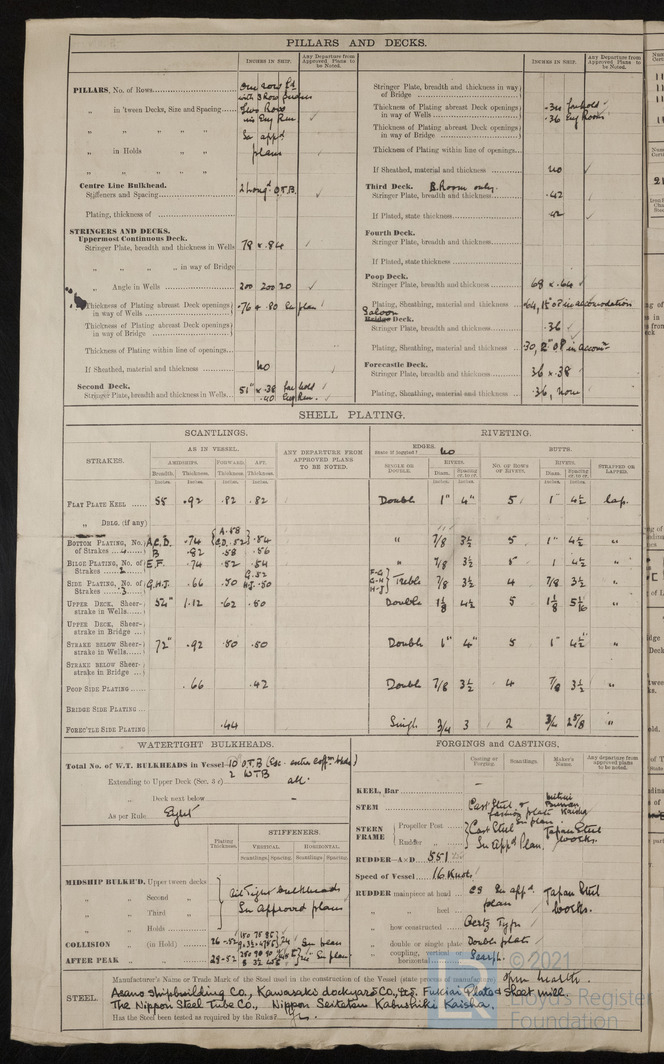 PILLARS AND DECKS.
INCHES IN SHIP.
Any Departure from Approved Plans to be Noted.
PILLARS, No. of Rows
One row fd
with 3 Row
„ in 'tween Decks, Size and Spacing
Two Rows
in Eng Rm
„ „ „ „
See appd
„ in Holds „ „
plans
Centre Line Bulkhead.
Stiffeners and Spacing
2 Longl O.T.B.
Plating, thickness of
STRINGERS AND DECKS.
Uppermost Continuous Deck.
Stringer Plate, breadth and thickness in Wells 78 x .84
„ „ „ „ in way of Bridge
„ Angle in Wells 200 200 20
Thickness of Plating abreast Deck openings in way of Wells .76 & .80 See plan
Thickness of Plating abreast Deck openings in way of Bridge
Thickness of Plating within line of openings
If Sheathed, material and thickness No
Second Deck.
Stringer Plate, breadth and thickness in Wells 51" x .38 for hold
.40 Eng Rm.
INCHES IN SHIP.
Any Departure from Approved Plans to be Noted.
Stringer Plate, breadth and thickness in way of Bridge
Thickness of Plating abreast Deck openings in way of Wells .34 for hold
.36 Eng Room
Thickness of Plating abreast Deck openings in way of Bridge
Thickness of Plating within line of openings
If Sheathed, material and thickness no
Third Deck. B. Room only.
Stringer Plate, breadth and thickness .42
If Plated, state thickness .42
Fourth Deck.
Stringer Plate, breadth and thickness
If Plated, state thickness
Poop Deck.
Stringer Plate, breadth and thickness 68 x .64
Plating, Sheathing, material and thickness .64, O.P in accomodation
Saloon
Bridge Deck.
Stringer Plate, breadth and thickness .36
Plating, Sheathing, material and thickness .30, 2" O.P in accomn
Forecastle Deck.
Stringer Plate, breadth and thickness 36 x .38
Plating, Sheathing, material and thickness .36, none
SHELL PLATING.
SCANTLINGS.
RIVETING.
STRAKES.
AS IN VESSEL.
ANY DEPARTURE FROM APPROVED PLANS TO BE NOTED.
EDGES.
State if joggled? No
BUTTS.
AMIDSHIPS. FORWARD. AFT.
Breadth. Thickness. Thickness. Thickness.
SINGLE OR DOUBLE.
RIVETS.
Diam. Spacing cr. to cr.
NO. OF ROWS OF RIVETS.
RIVETS.
Diam. Spacing cr. to cr.
STRAPPED OR LAPPED.
Inches. Inches. Inches. Inches.
FLAT PLATE KEEL 55 .92 .82 .82 Double 1" 4" 5 1" 4½ lap.
„ DBLG. (if any)
BOTTOM PLATING, No. of Strakes 4 A.C.D. .74 A .58 C.D. .52 .54 „ 7/8 3½ 5 1" 4½ „
B .82 .58 .56
BILGE PLATING, No. of Strakes 2 E.F. .74 .52 .54 „ 7/8 3½ 5 1 4½ „
SIDE PLATING, No. of Strakes 3 G.H.J. .66 .50 G .52 H.J. .50 F-G G-H H-J Treble 7/8 3½ 4 7/8 3½ „
UPPER DECK, Sheer-strake in Wells 54" 1.12 .62 .50 Double 1⅛ 4½ 5 1⅛ 5 1/16 „
UPPER DECK, Sheer-strake in Bridge
STRAKE BELOW Sheer-strake in Wells 72" .92 .50 .50 Double 1" 4" 5 1" 4½ „
STRAKE BELOW Sheer-strake in Bridge
POOP SIDE PLATING .66 .42 Double 7/8 3½ 4 7/8 3½ „
BRIDGE SIDE PLATING
FOREC'TLE SIDE PLATING .44 Single 3/4 3 2 3/4 2⅝ „
WATERTIGHT BULKHEADS.
Total No. of W.T. BULKHEADS in Vessel 10 O.T.B
2 W.T.B
Extending to Upper Deck (Sec. 3 c) all.
„ Deck next below –
As per Rule Eight
Plating Thickness.
STIFFENERS.
VERTICAL. HORIZONTAL.
Scantlings. Spacing. Scantlings. Spacing.
MIDSHIP BULKH'D, Upper tween decks
„ „ Second „
„ „ Third „
„ „ Holds
Oil Tight bulkheads
See Approved plans
COLLISION „ (in Hold) .26-.52 See plan
AFTER PEAK „ „ See plan
FORGINGS and CASTINGS.
Casting or Forging.
Scantlings.
Maker's Name.
Any departure from approved plans to be noted.
KEEL, Bar –
STEM Cast Steel &
fashion plate
Kaisha
STERN FRAME
Propeller Post
Rudder „
Cast Steel See plan
See Appd Plan.
Japan Steel
Works.
RUDDER—A×D 551
Speed of Vessel 16 Knots
RUDDER mainpiece at head CS See appd
plan
Japan Steel
Works.
„ „ heel
„ how constructed Oertz Type
„ double or single plate Double plate
„ coupling, vertical or horizontal Scarph.
STEEL.
Manufacturer's Name or Trade Mark of the Steel used in the construction of the Vessel (state process of manufacture) Open hearth.
Asano Shipbuilding Co., Kawasaki dockyard Co., Ltd. Fukiai Plate & Sheet mill.
The Nippon Steel Tube Co., Nippon Seitetsu Kabushiki Kaisha.
Has the Steel been tested as required by the Rules? Yes.
© 2021
Lloyd's Register
Foundation